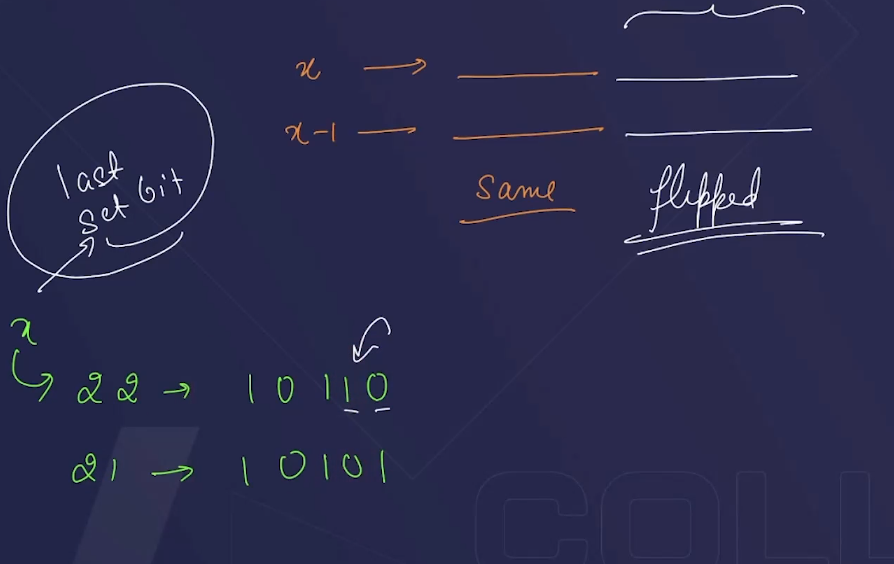 x →
x-1 →
Same flipped
last
set bit
x
22 → 10110
21 → 10101
COLL